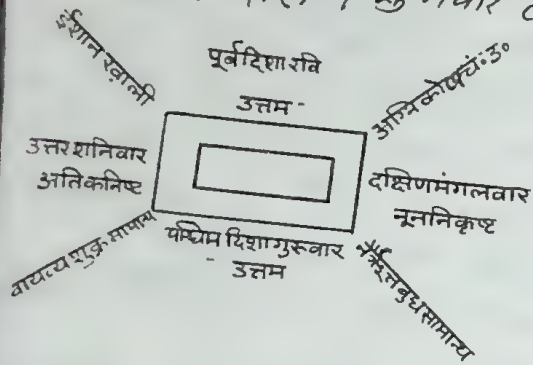 ईशान खाली
पूर्व दिशा रवि
उत्तम -
अग्निकोण चं॰ उ॰
उत्तर शनिवार
अतिकनिष्ट
दक्षिण मंगलवार
नून निकृष्ट
वायव्य शुक्र सामान्य
पश्चिम दिशा गुरूवार
- उत्तम
नैॠत बुध सामान्य